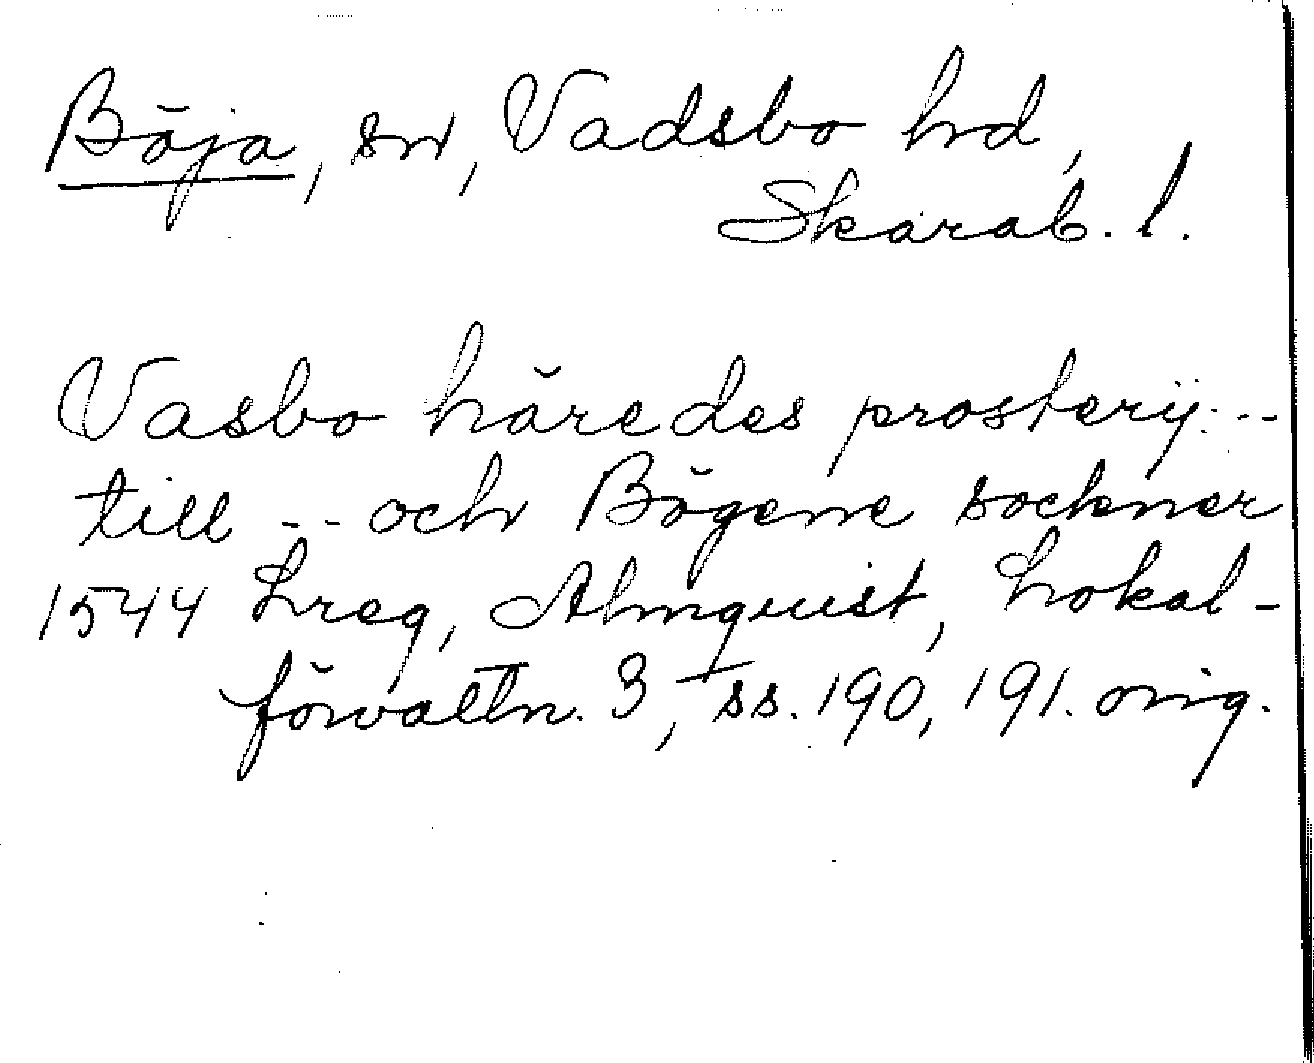 Böja, sn, Vadsbo hd,
Skarab. l.
Vasbo häredes prosterij...
till ... och Bögene sockner
1544 Lreg, Almquist, Lokal-
förvaltn. 3, ss. 190, 191. orig.